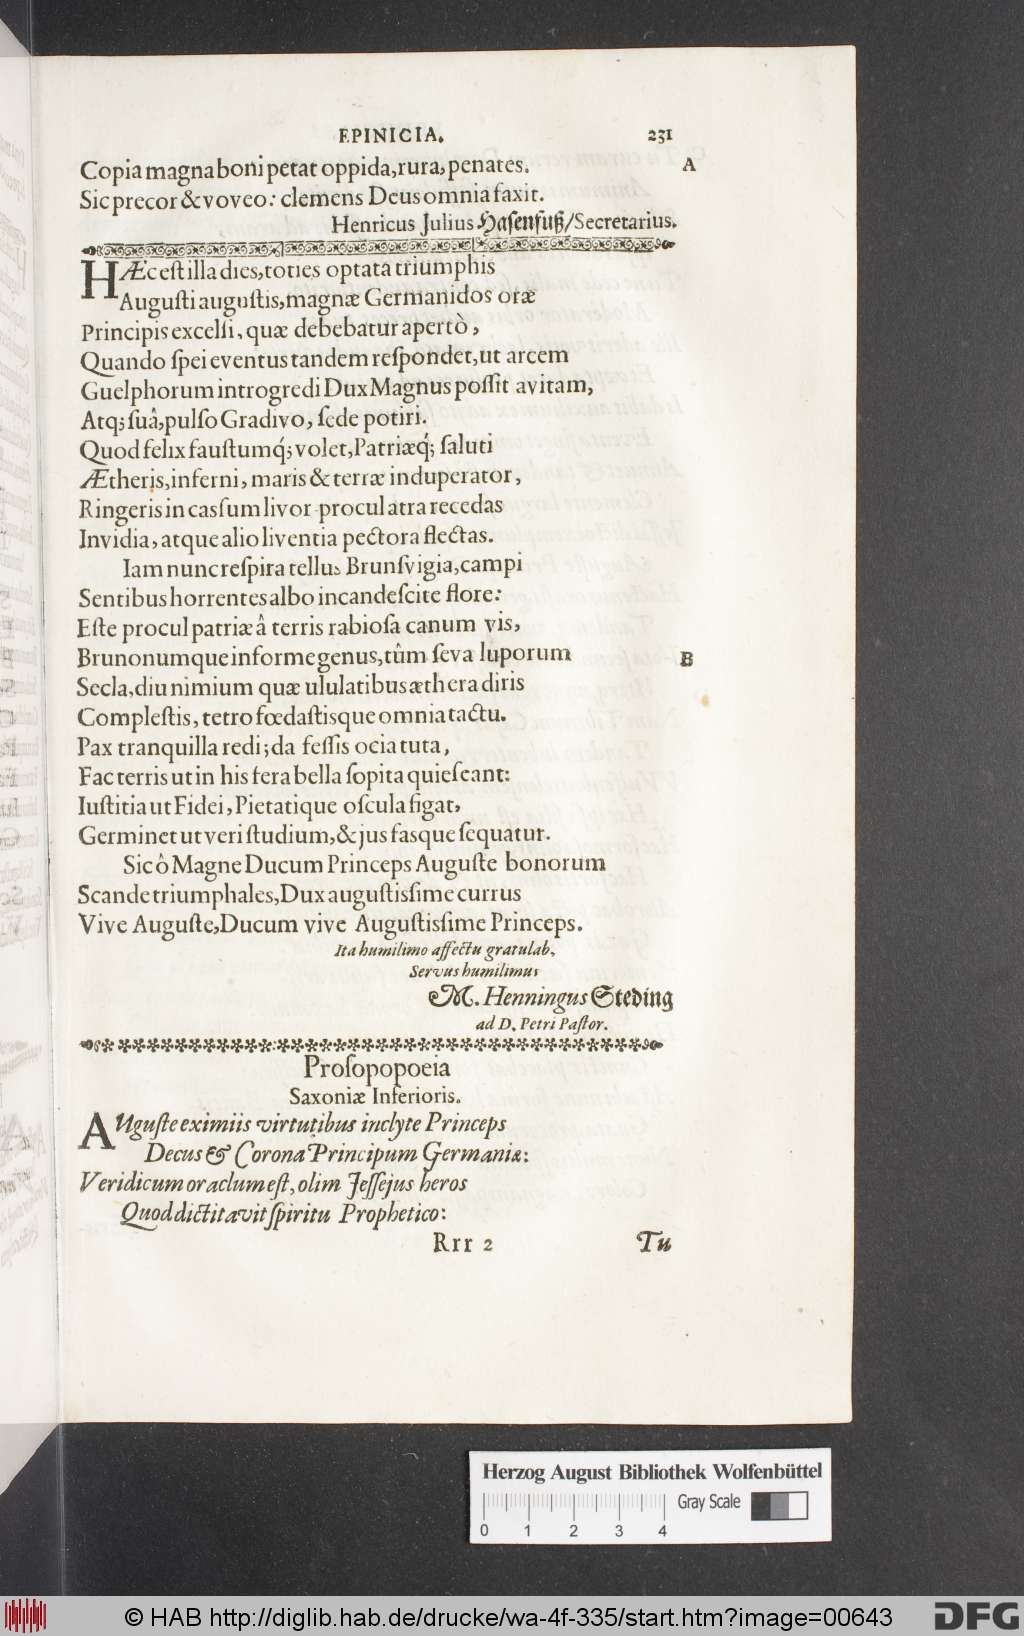 EPINICIA. 231
Copia magna boni petat oppida, rura, penates. A
Sic precor & voveo: clemens Deus omnia faxit.
Henricus Julius Hasenfuß/Secretarius.
HÆc est illa dies, toties optata triumphis
Augusti augustis, magnæ Germanidos oræ
Principis excelsi, quæ debebatur apertò,
Quando spei eventus tandem respondet, ut arcem
Guelphorum introgredi Dux Magnus possit avitam,
Atq; suâ, pulso Gradivo, sede potiri.
Quod felix faustumq́; volet, Patriæq́; saluti
Ætheris, inferni, maris & terræ induperator,
Ringeris in cassum livor procul atra recedas
Invidia, atque alio liventia pectora flectas.
Iam nunc respira tellus Brunsvigia, campi
Sentibus horrentes albo incandescite flore:
Este procul patriæ â terris rabiosa canum vis,
Brunonumque informe genus, tûm seva luporum B
Secla, diu nimium quæ ululatibus æthera diris
Complestis, tetro fœdastisque omnia tactu.
Pax tranquilla redi; da fessis ocia tuta,
Fac terris ut in his fera bella sopita quiescant:
Iustitia ut Fidei, Pietatique oscula figat,
Germinet ut veri studium, & jus fasque sequatur.
Sic ô Magne Ducum Princeps Auguste bonorum
Scande triumphales, Dux augustissime currus
Vive Auguste, Ducum vive Augustissime Princeps.
Ita humilimo affectu gratulab,
Servus humilimus
M. Henningus Steding
ad D. Petri Pastor.
Prosopopoeia
Saxoniæ Inferioris.
AUguste eximiis virtutibus inclyte Princeps
Decus & Corona Principum Germaniæ:
Veridicum oraclum est, olim Jessejus heros
Quod dictitavit spiritu Prophetico:
Rrr 2 Tu
Herzog August Bibliothek Wolfenbüttel
Gray Scale
0 1 2 3 4
© HAB http://diglib.hab.de/drucke/wa-4f-335/start.htm?image=00643 DFG